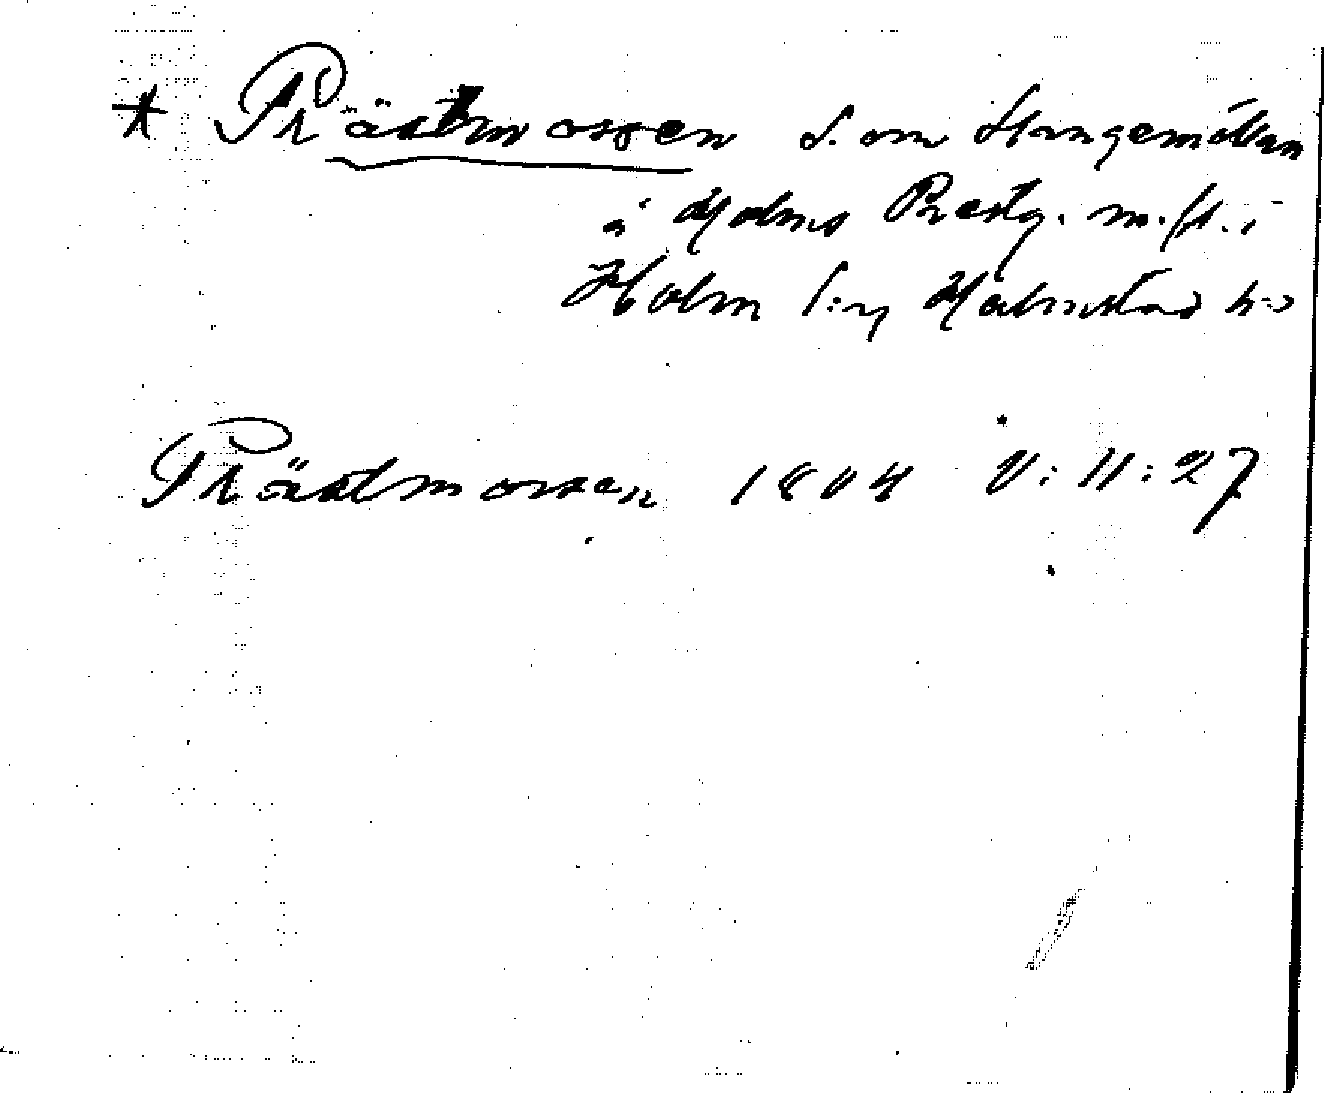 * Prästmossen S. om Stangemöllan
å Holms Prestg. m. fl. i
Holm s:n Halmstad h:d
Prästmossen 1804 V: 11: 27